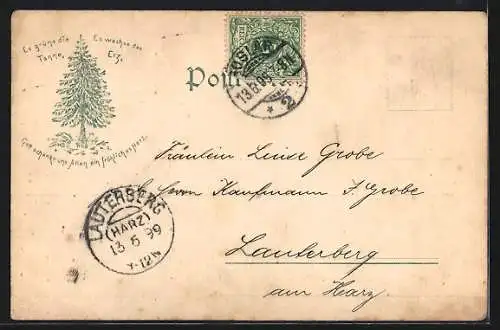 Es grüne die Es wachse das
Tanne, Erz.
Gott schenke uns Allen ein fröhliches Herz.
Post
GOSLAR
13.5.99
* 2
Fräulein Luise Grobe
Herrn Kaufmann F. Grobe
Lauterberg
am Harz.
LAUTERBERG
(HARZ)
13 5 99